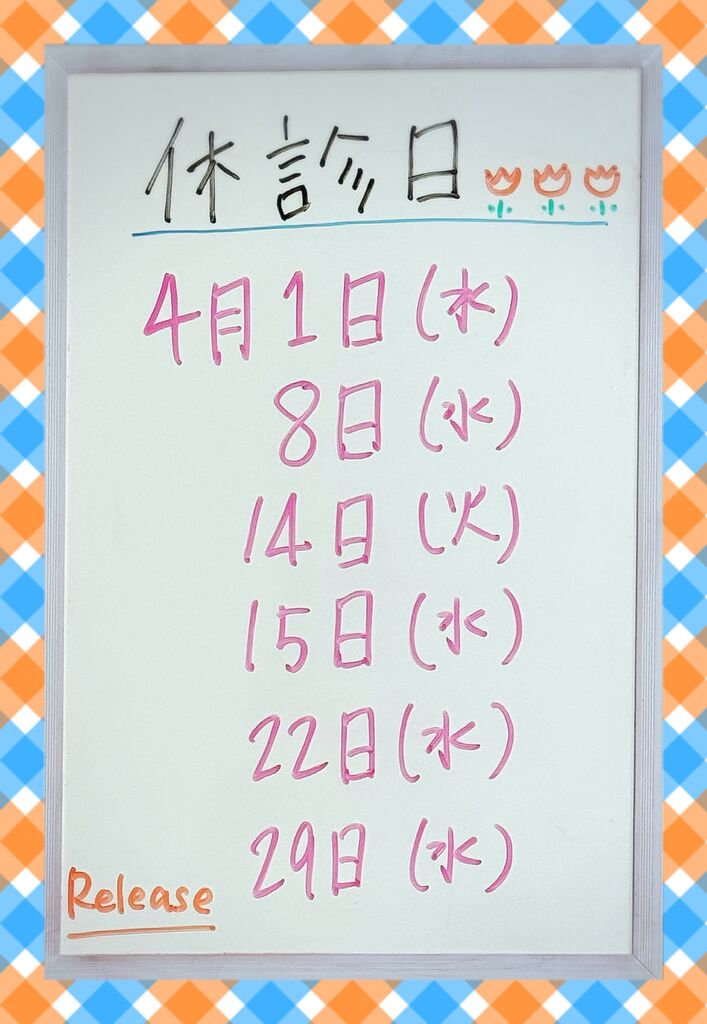 休診日
4月1日(水)
8日(水)
14日(火)
15日(水)
22日(水)
29日(水)
Release